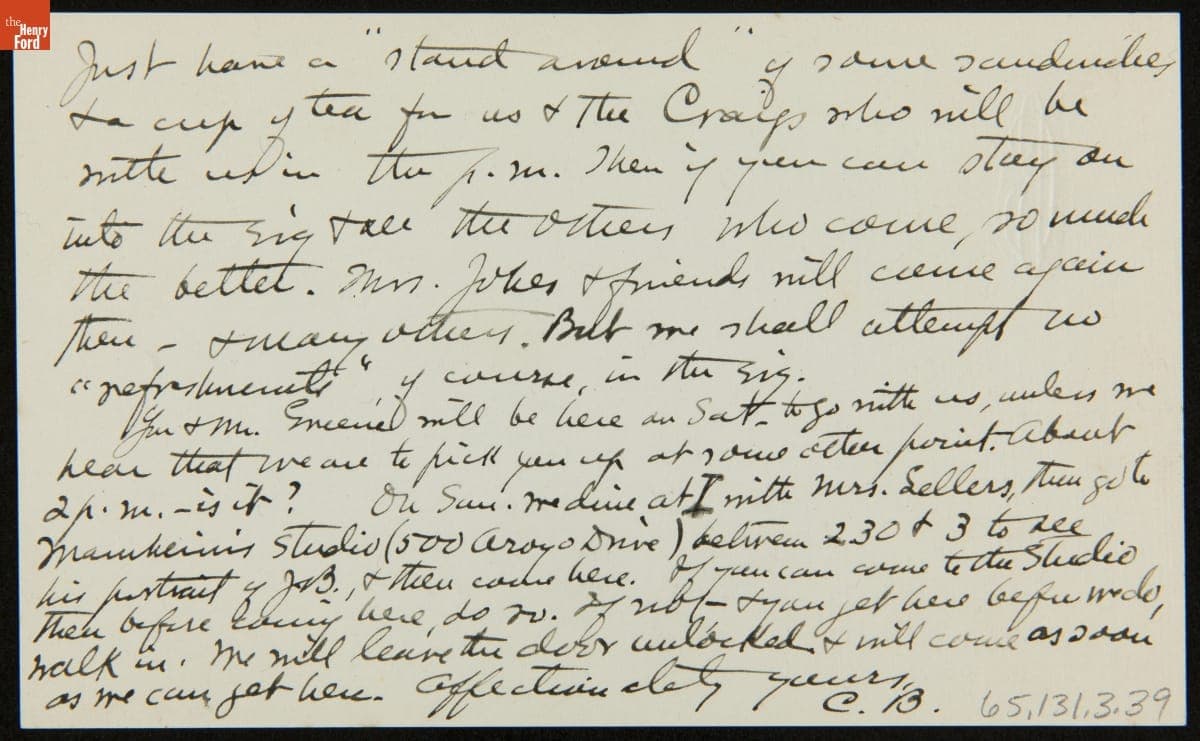 the
Henry
Ford
Just have a "stand around" of some sandwiches
& a cup of tea for us & the Craigs who will be
with us in the p.m. Then if you can stay on
into the evg & see the others who come, so much
the better. Mrs. Jokes & friends will come again
then – & many others. But we shall attempt no
"refreshments", of course, in the evg.
You & Mr. Greene will be here on Sat. to go with us, unless we
hear that we are to pick you up at some other point. About
2 p.m. – is it? On Sun. we dine at 1 with Mrs. Sellers, then go to
Mannheim's Studio (500 Aroyo Drive) between 2 30 & 3 to see
his portrait of J.B., & then come here. If you can come to the Studio
then before coming here, do so. If not – & you get here before we do,
walk in. We will leave the door unlocked & will come as soon
as we can get here. Affectionately yours,
C. B.
65.131.3.39